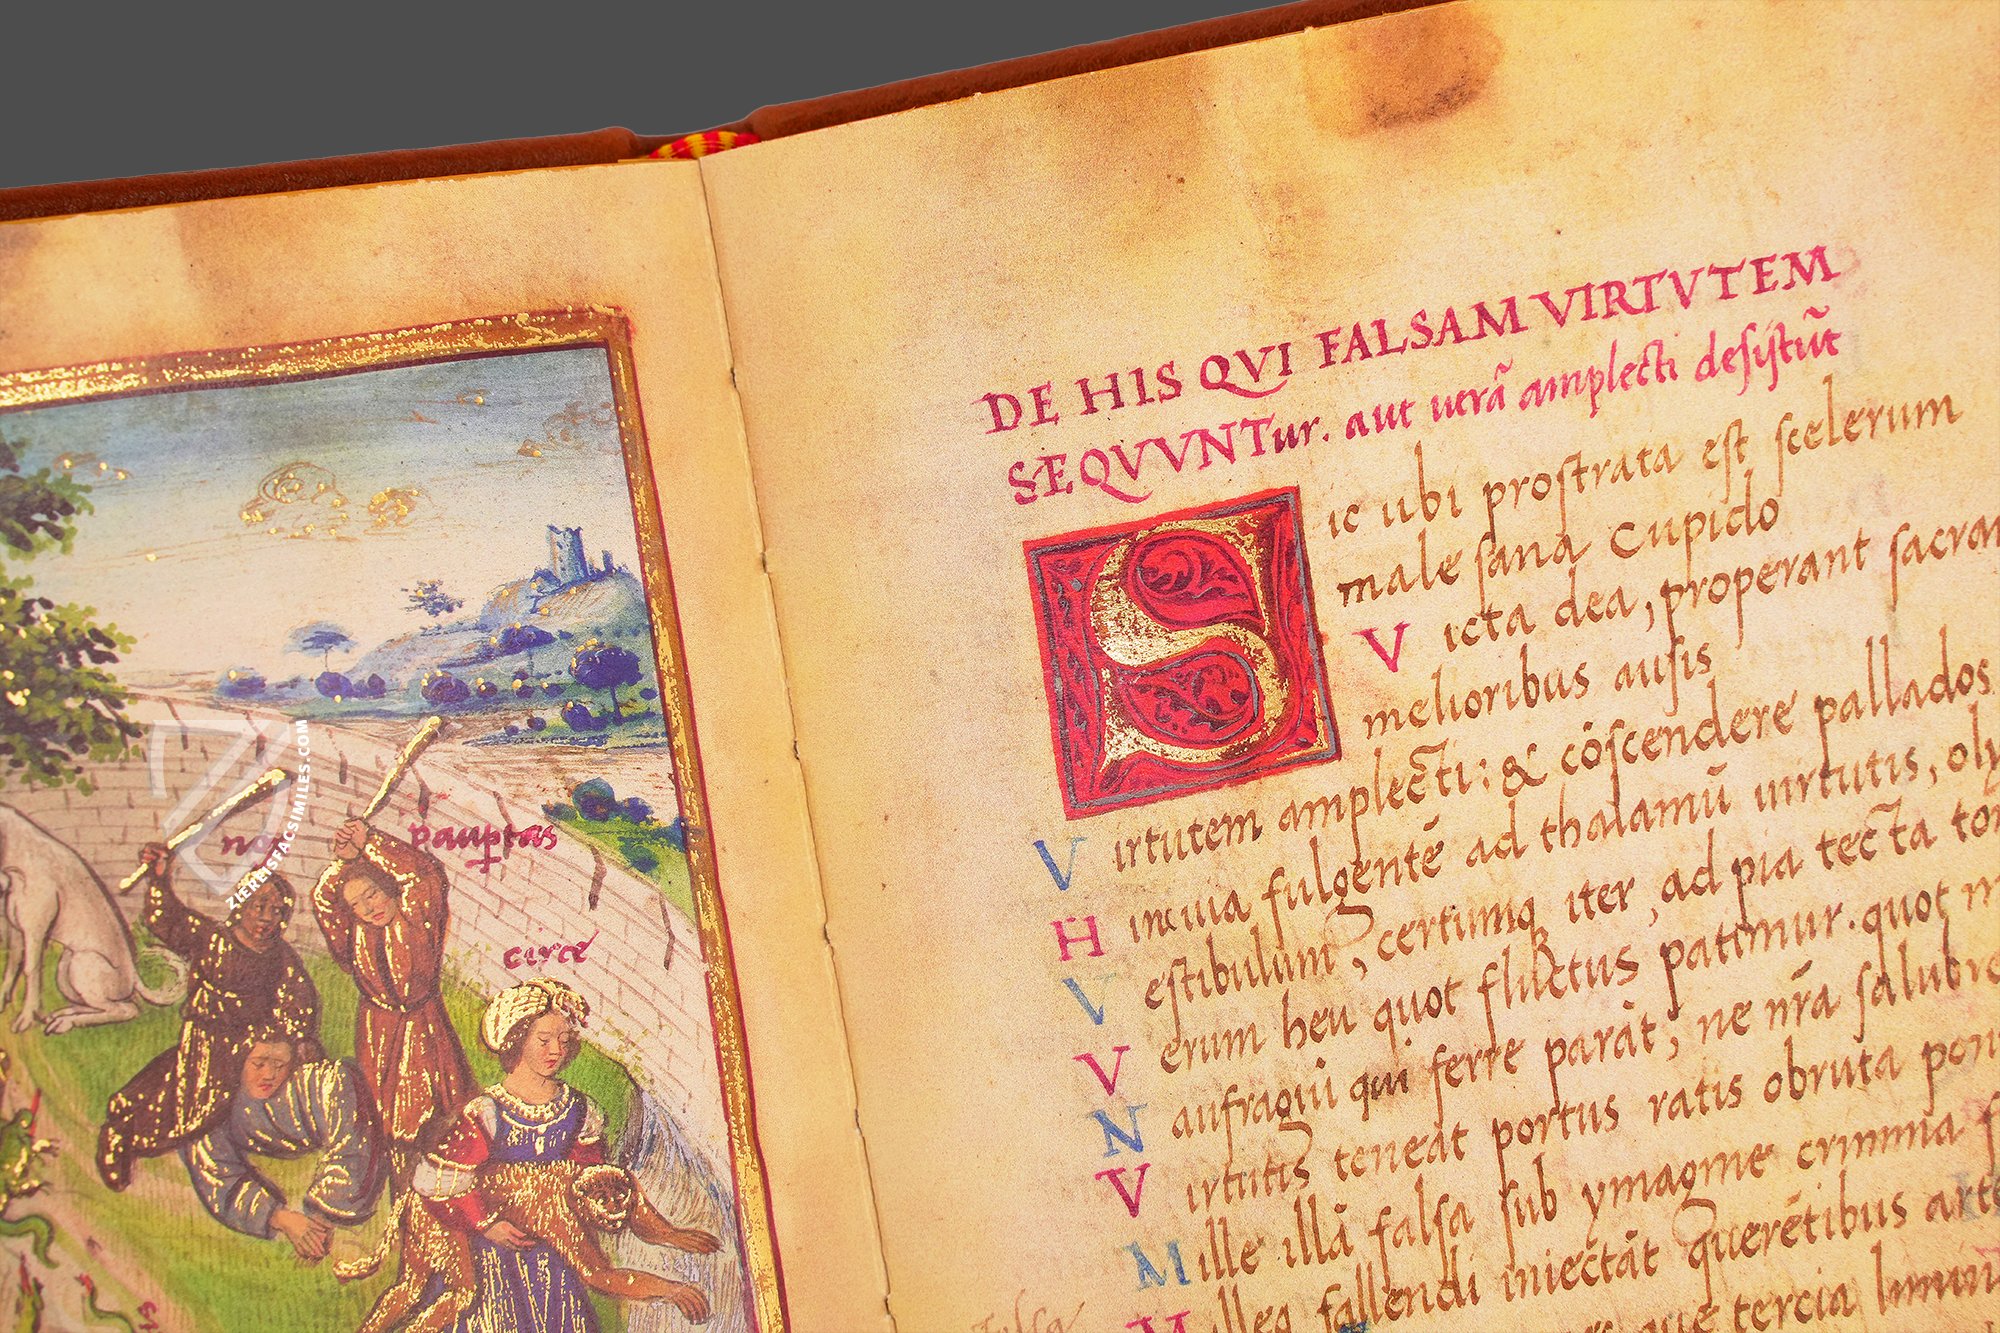 nox
pauptas
circe
ZIEREISFACSIMILES.COM
DE HIS QVI FALSAM VIRTVTEM
SEQVVNTur. aut uerã amplecti desistũt
Sic ubi prostrata est scelerum
male sana Cupido
Victa dea, properant sacram
melioribus ausis
Virtutem amplecti: & cõscendere pallados
Hinc uia fulgentẽ ad thalamũ uirtutis,
Vestibulum, certumq iter, ad pia tecta
Verum heu quot fluctus patimur. quot
Naufragui qui ferre parãt, ne nr̃a
Virtutis teneãt portus ratis obruta
Mille illã falsa sub ymagine crimina
fallendi iniectãt querẽtibus
tercia
falsa